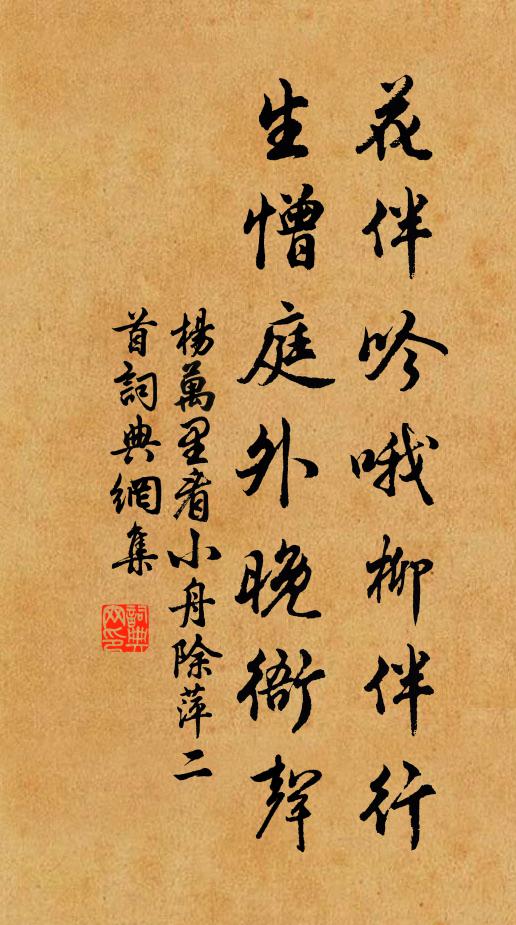 花伴吟哦柳伴行
生憎庭外晚衙聲
楊萬里看小舟除萍二
首詞典網集
詞典
网印